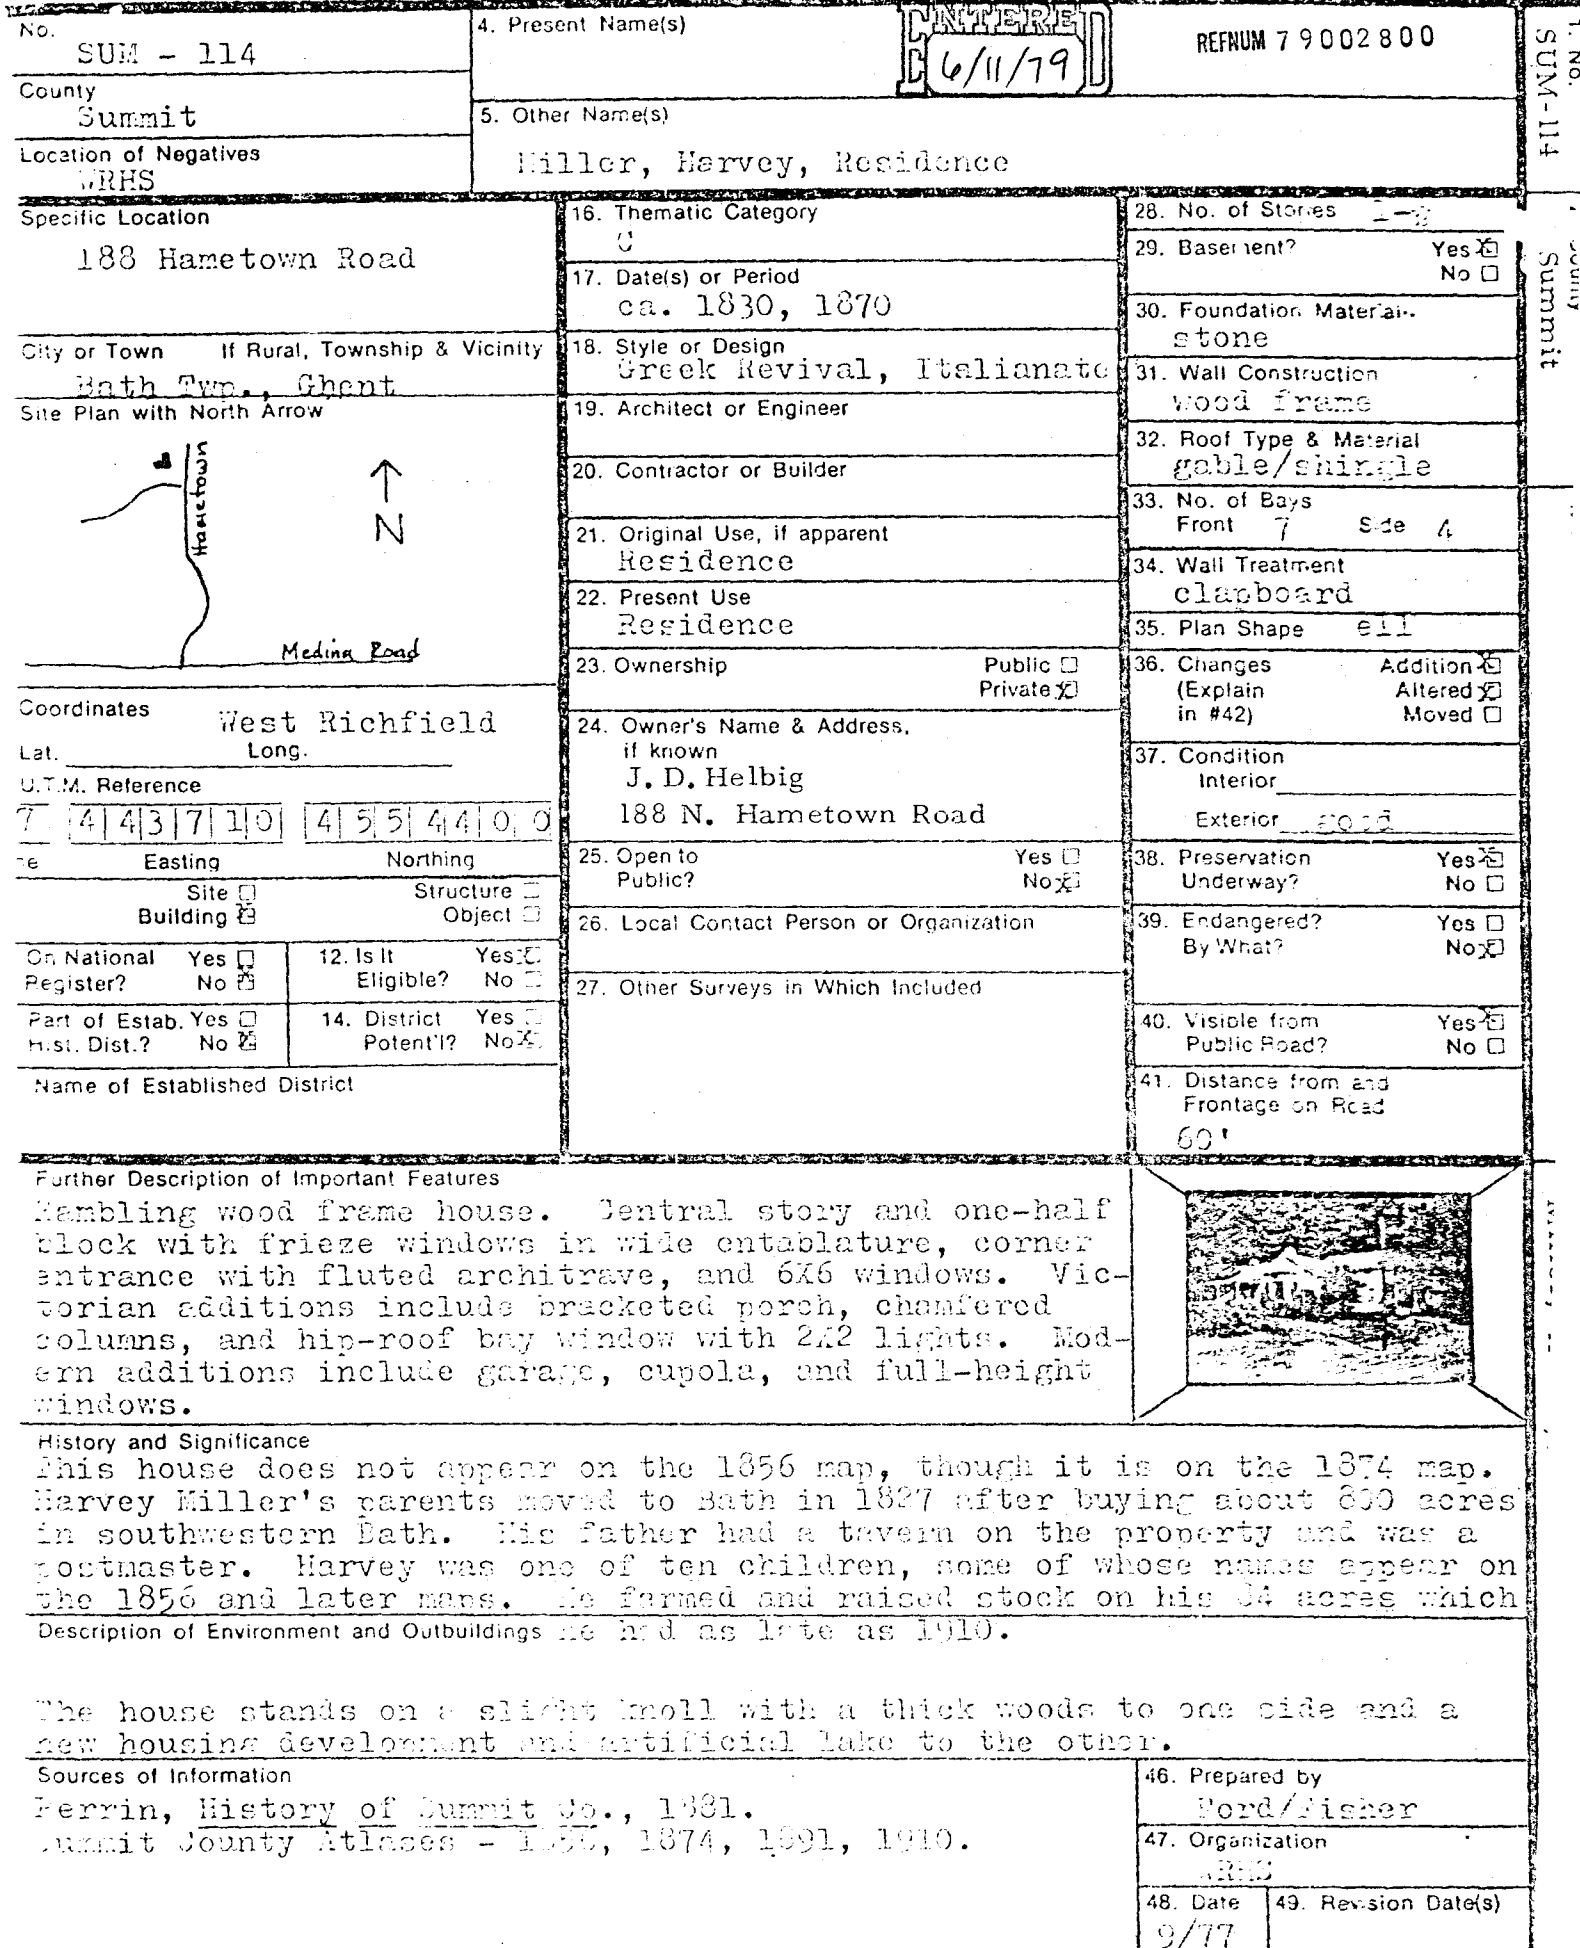 No.
SUM - 114
County
Summit
Location of Negatives
WRHS
4. Present Name(s)
ENTERED
6/11/79
REFNUM 79002800
5. Other Name(s)
Miller, Harvey, Residence
1. No.
SUM-114
County
Summit
Specific Location
188 Hametown Road
City or Town If Rural, Township & Vicinity
Bath Twp., Ghent
Site Plan with North Arrow
Hametown
N
Medina Road
Coordinates
West Richfield
Lat. Long.
U.T.M. Reference
7 443710 4554400
Easting Northing
Site Structure
Building Object
On National Register? Yes No
12. Is It Eligible? Yes No
Part of Estab. Hist. Dist.? Yes No
14. District Potent'l? Yes No
Name of Established District
16. Thematic Category
C
17. Date(s) or Period
ca. 1830, 1870
18. Style or Design
Greek Revival, Italianate
19. Architect or Engineer
20. Contractor or Builder
21. Original Use, if apparent
Residence
22. Present Use
Residence
23. Ownership Public
Private
24. Owner's Name & Address,
if known
J. D. Helbig
188 N. Hametown Road
25. Open to Yes
Public? No
26. Local Contact Person or Organization
27. Other Surveys in Which Included
28. No. of Stories
29. Basement? Yes
No
30. Foundation Material
stone
31. Wall Construction
wood frame
32. Roof Type & Material
gable/shingle
33. No. of Bays
Front 7 Side 4
34. Wall Treatment
clapboard
35. Plan Shape ell
36. Changes Addition
(Explain Altered
in #42) Moved
37. Condition
Interior
Exterior good
38. Preservation Yes
Underway? No
39. Endangered? Yes
By What? No
40. Visible from Yes
Public Road? No
41. Distance from and
Frontage on Road
60'
Further Description of Important Features
Rambling wood frame house. Central story and one-half
block with frieze windows in wide entablature, corner
entrance with fluted architrave, and 6X6 windows. Vic-
torian additions include bracketed porch, chamfered
columns, and hip-roof bay window with 2X2 lights. Mod-
ern additions include garage, cupola, and full-height
windows.
History and Significance
This house does not appear on the 1856 map, though it is on the 1874 map.
Harvey Miller's parents moved to Bath in 1827 after buying about 800 acres
in southwestern Bath. His father had a tavern on the property and was a
postmaster. Harvey was one of ten children, some of whose names appear on
the 1856 and later maps. He farmed and raised stock on his acres which
Description of Environment and Outbuildings he had as late as 1910.
The house stands on a slight knoll with a thick woods to one side and a
new housing development and artificial lake to the other.
Sources of Information
Perrin, History of Summit Co., 1881.
Summit County Atlases - 1856, 1874, 1891, 1910.
46. Prepared by
Ford/Fisher
47. Organization
WRHS
48. Date
9/77
49. Revision Date(s)